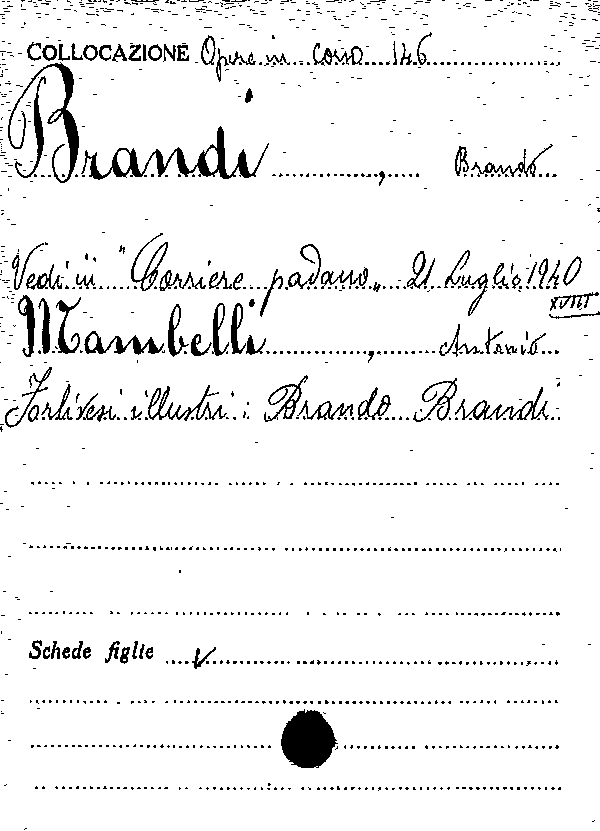 COLLOCAZIONE Opere in corso 146
Brandi, Brando
Vedi in "Corriere padano" 21 Luglio 1940
XVIII
Mambelli, Antonio
Forlivesi illustri: Brando Brandi
Schede figlie V